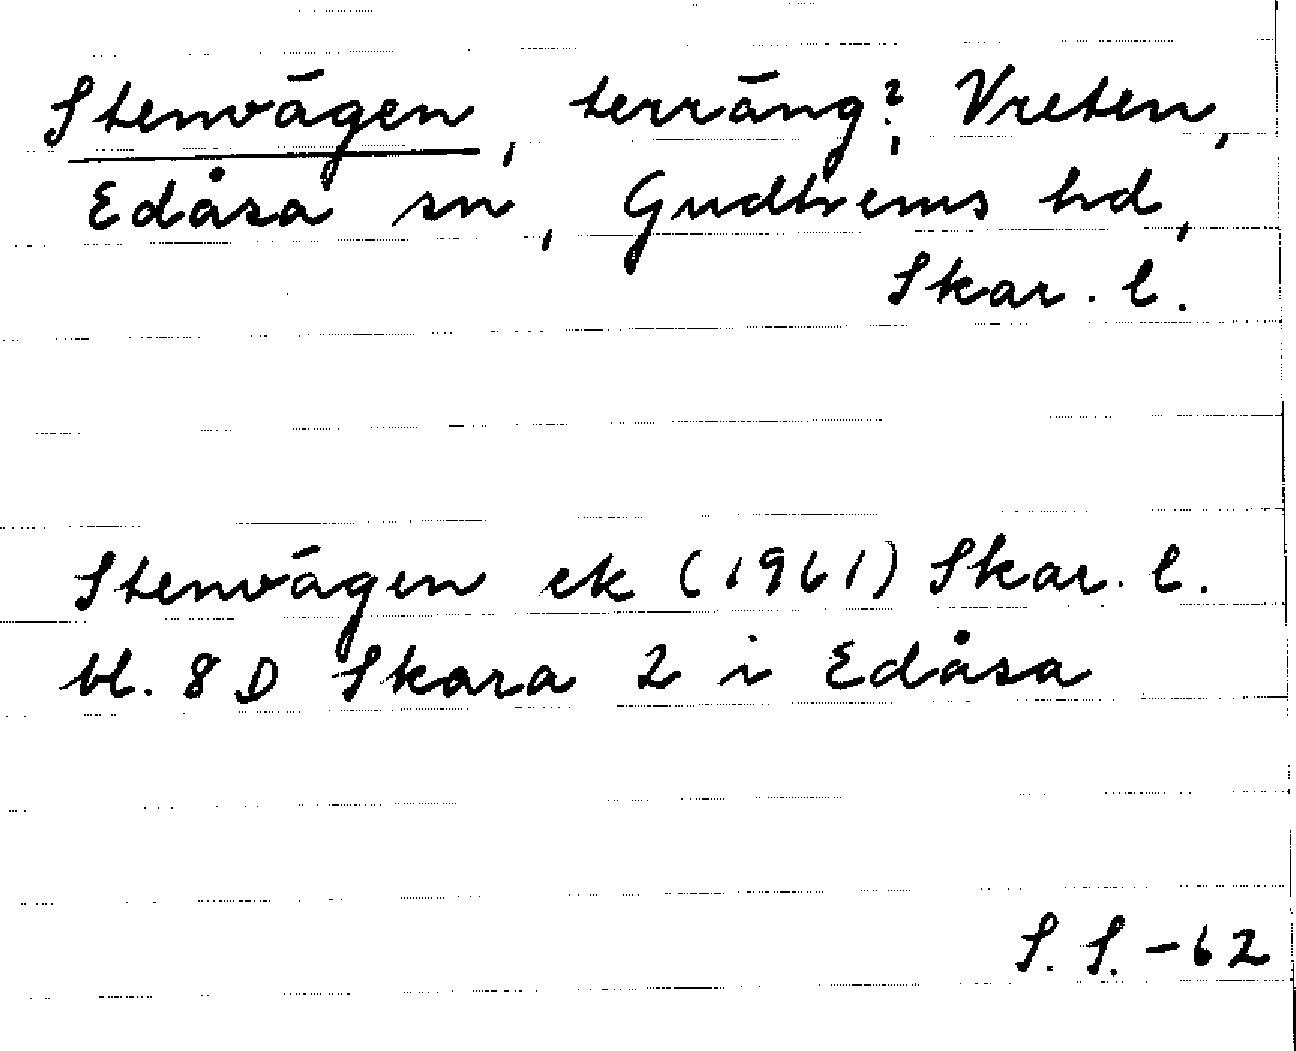 Stenvägen, terräng?, Vreten,
Edåsa sn, Gudhems hd,
Skar. l.
Stenvägen ek (1961) Skar. l.
bl. 8 D Skara 2 i Edåsa
S. S. -62